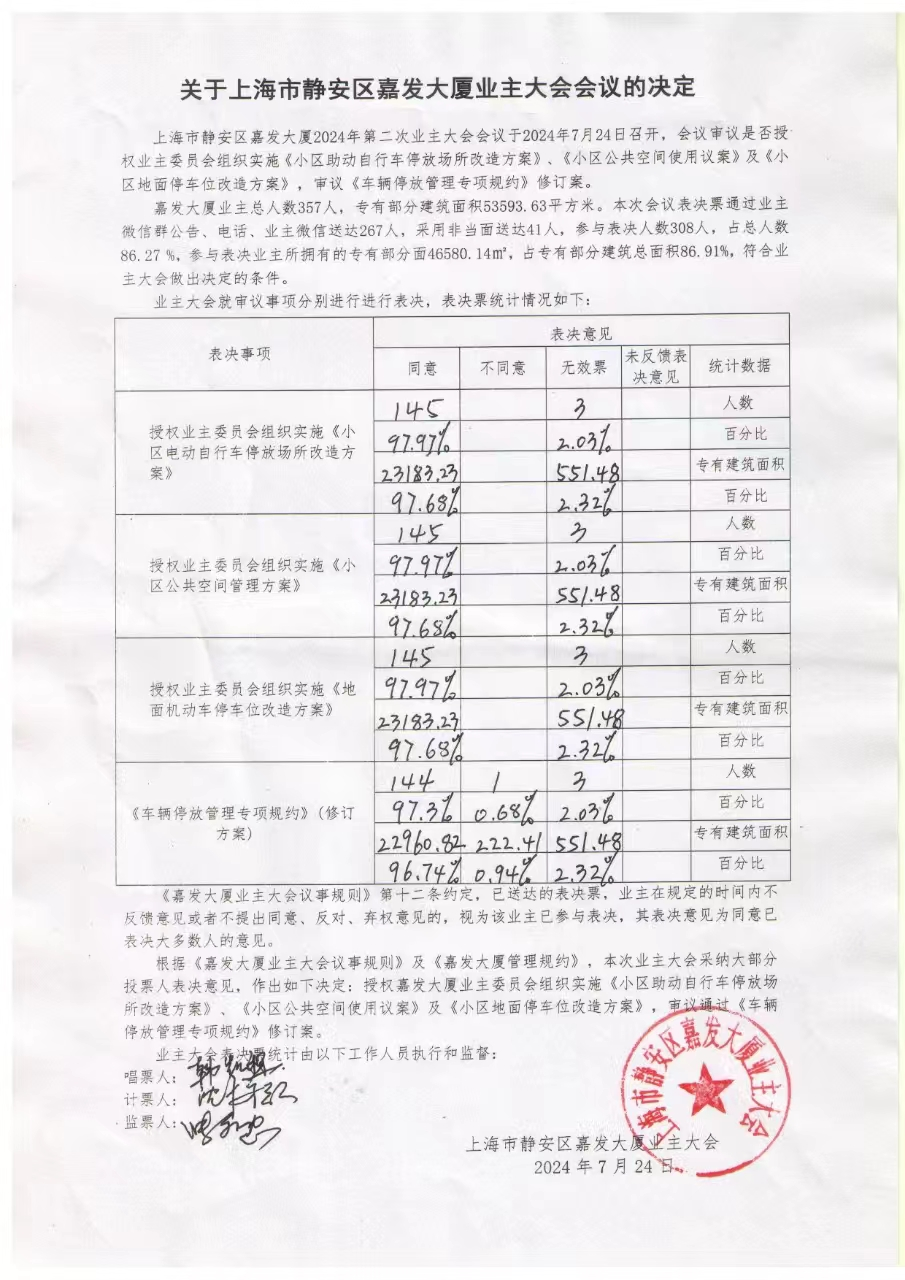 关于上海市静安区嘉发大厦业主大会会议的决定
上海市静安区嘉发大厦2024年第二次业主大会会议于2024年7月24日召开，会议审议是否授
权业主委员会组织实施《小区助动自行车停放场所改造方案》、《小区公共空间使用议案》及《小
区地面停车位改造方案》，审议《车辆停放管理专项规约》修订案。
嘉发大厦业主总人数357人，专有部分建筑面积53593.63平方米。本次会议表决票通过业主
微信群公告、电话、业主微信送达267人，采用非当面送达41人，参与表决人数308人，占总人数
86.27 %，参与表决业主所拥有的专有部分面46580.14㎡，占专有部分建筑总面积86.91%，符合业
主大会做出决定的条件。
业主大会就审议事项分别进行进行表决，表决票统计情况如下：
表决事项
表决意见
同意 不同意 无效票 未反馈表 统计数据
决意见
145 3 人数
授权业主委员会组织实施《小
区电动自行车停放场所改造方
案》
97.97% 2.03% 百分比
23183.23 551.48 专有建筑面积
97.68% 2.32% 百分比
145 3 人数
授权业主委员会组织实施《小
区公共空间管理方案》
97.97% 2.03% 百分比
23183.23 551.48 专有建筑面积
97.68% 2.32% 百分比
145 3 人数
授权业主委员会组织实施《地
面机动车停车位改造方案》
97.97% 2.03% 百分比
23183.23 551.48 专有建筑面积
97.68% 2.32% 百分比
144 1 3 人数
《车辆停放管理专项规约》(修订
方案)
97.3% 0.68% 2.03% 百分比
22960.82 222.41 551.48 专有建筑面积
96.74% 0.94% 2.32% 百分比
《嘉发大厦业主大会议事规则》第十二条约定，已送达的表决票，业主在规定的时间内不
反馈意见或者不提出同意、反对、弃权意见的，视为该业主已参与表决，其表决意见为同意已
表决大多数人的意见。
根据《嘉发大厦业主大会议事规则》及《嘉发大厦管理规约》，本次业主大会采纳大部分
投票人表决意见，作出如下决定：授权嘉发大厦业主委员会组织实施《小区助动自行车停放场
所改造方案》、《小区公共空间使用议案》及《小区地面停车位改造方案》，审议通过《车辆
停放管理专项规约》修订案。
业主大会表决票统计由以下工作人员执行和监督：
唱票人：
计票人：
监票人：
上海市静安区嘉发大厦业主大会
上海市静安区嘉发大厦业主大会
2024 年 7 月 24 日